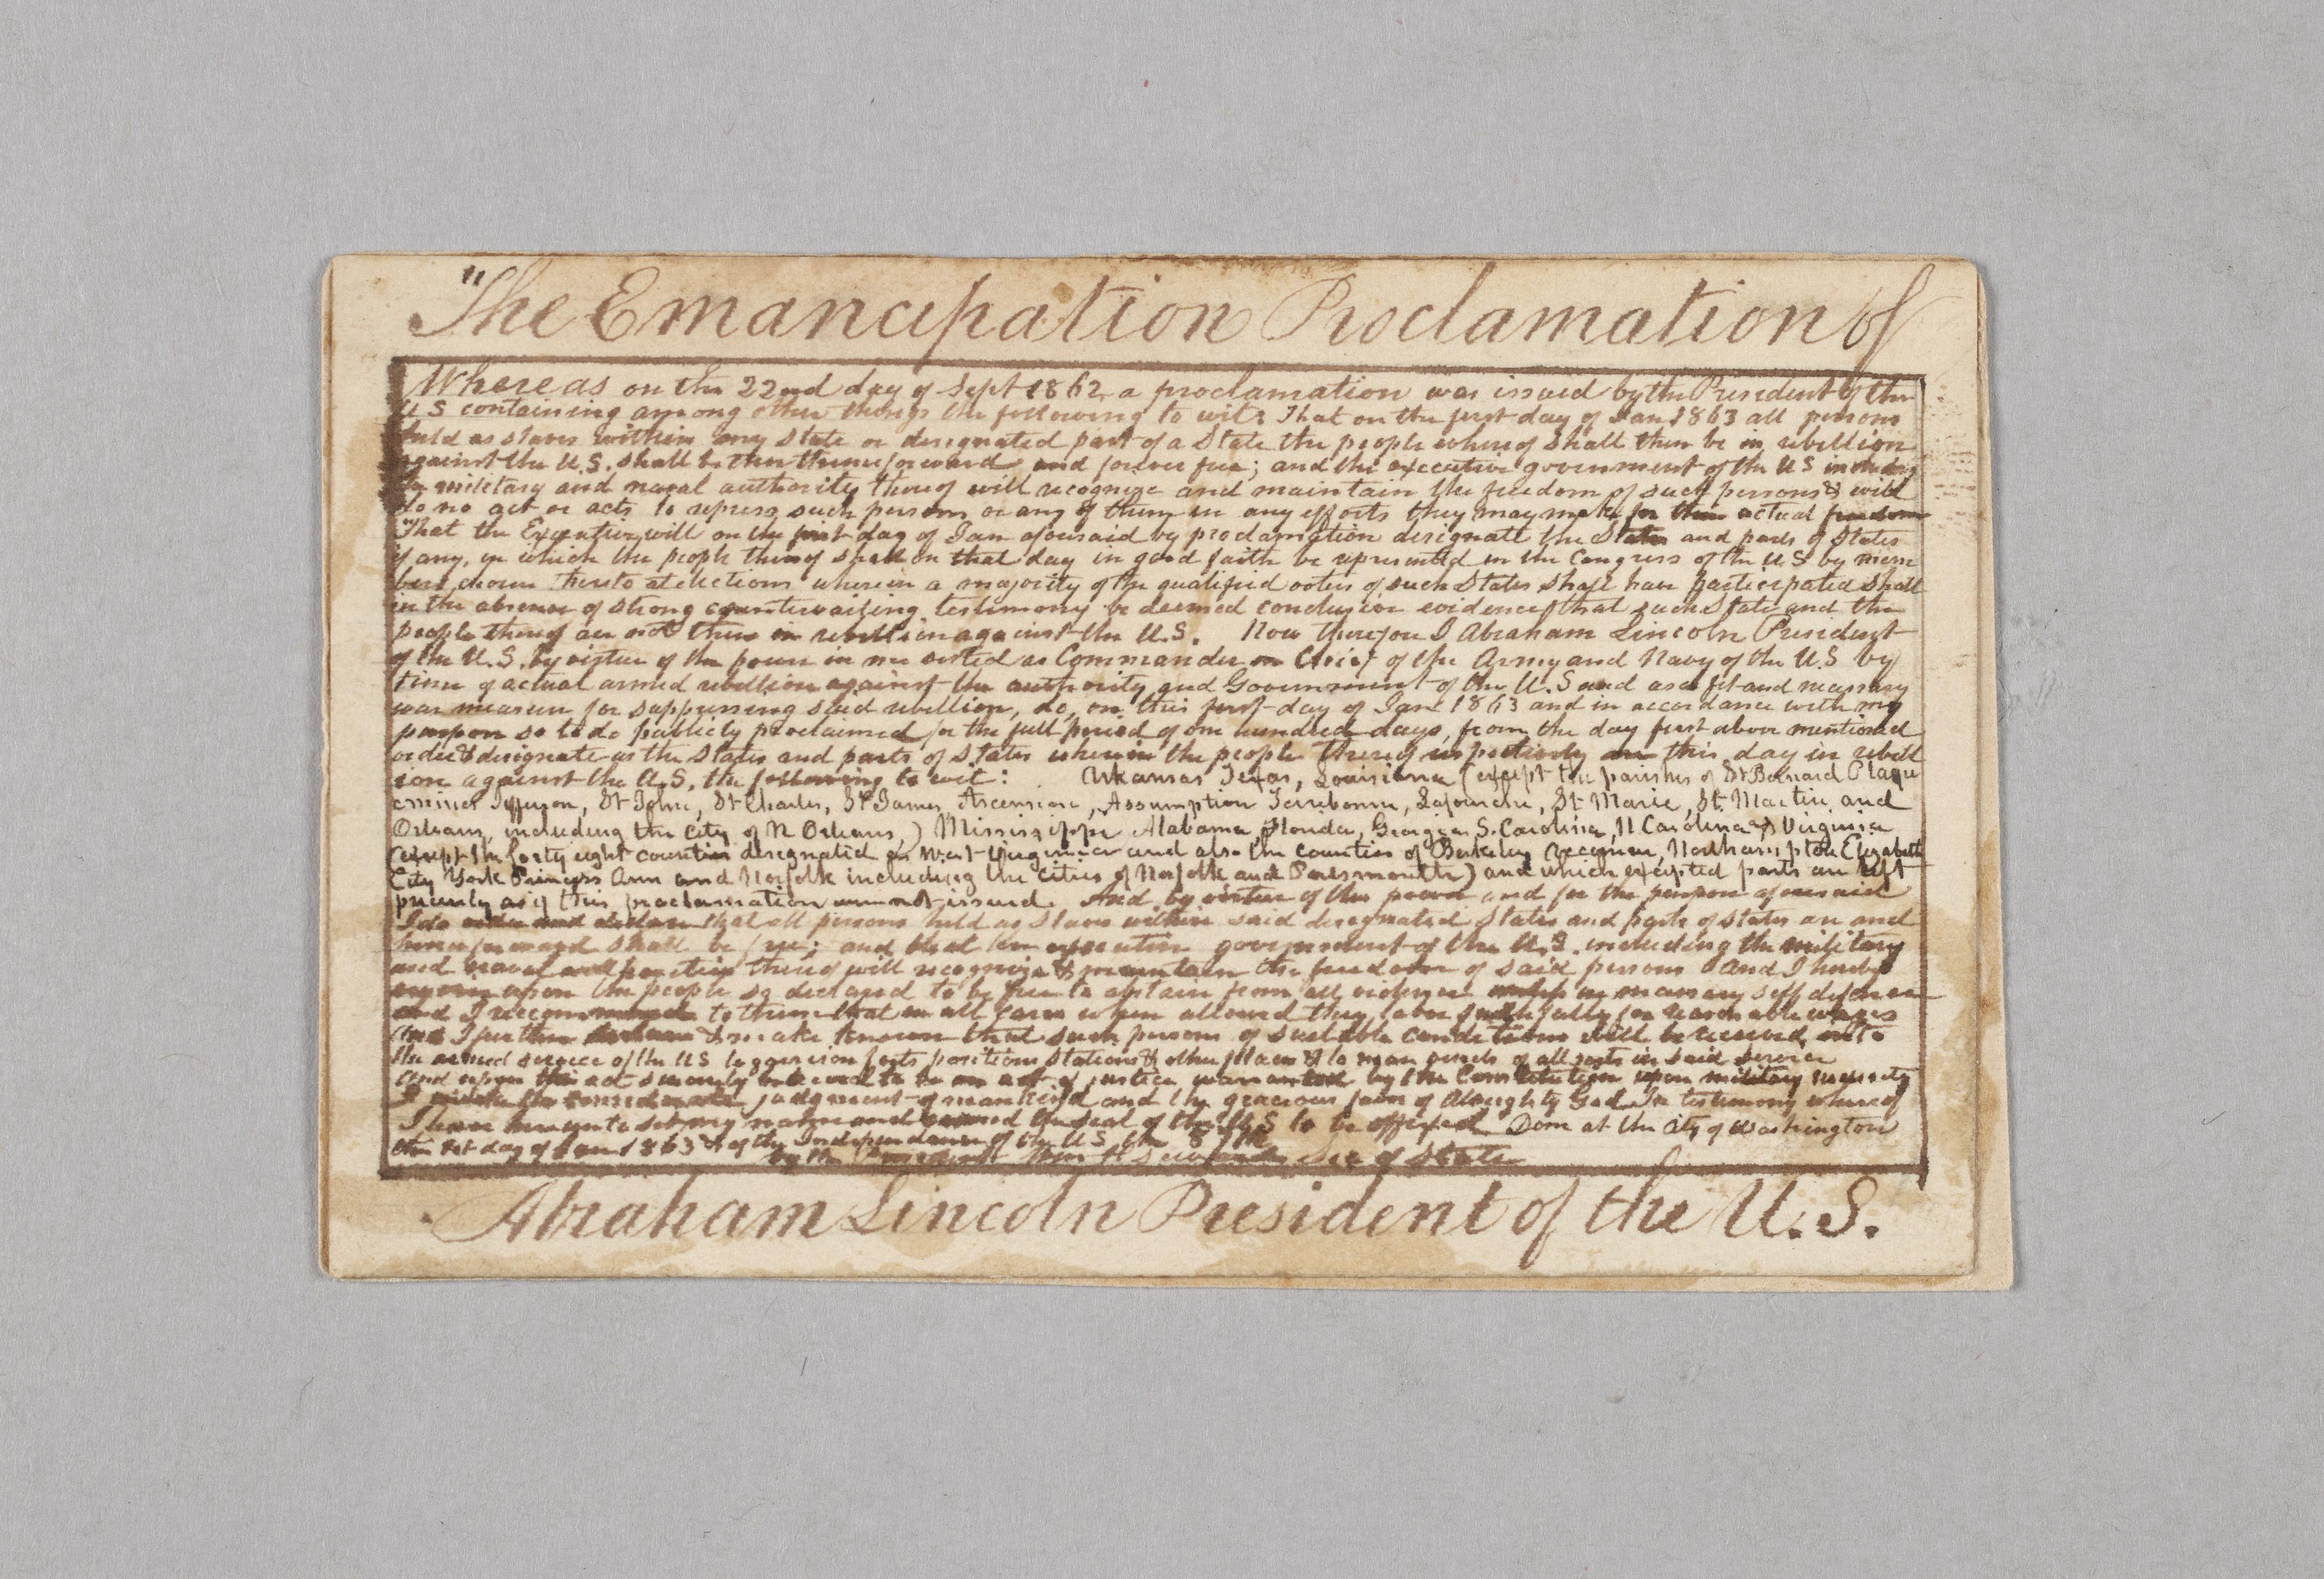 "The Emancipation Proclamation of
Whereas on the 22nd day of Sept 1862, a proclamation was issued by the President of the
U S containing among other things the following to wit: That on the first day of Jan 1863 all persons
held as slaves within any State or designated part of a State the people whereof shall then be in rebellion
against the U.S. shall be then thenceforward and forever free; and the executive government of the U S including
the military and naval authority thereof will recognize and maintain the freedom of such persons & will
do no act or acts to repress such persons or any of them in any efforts they may make for their actual freedom
That the Executive will on the first day of Jan aforesaid by proclamation designate the States and parts of States
if any, in which the people thereof shall on that day in good faith be represented in the Congress of the U S by mem
bers chosen thereto at elections wherein a majority of the qualified voters of such States shall have participated shall
in the absence of strong countervailing testimony be deemed conclusive evidence that such State and the
people thereof are not then in rebellion against the U.S. Now therefore I Abraham Lincoln President
of the U.S. by virtue of the power in me vested as Commander in Chief of the Army and Navy of the U.S by
time of actual armed rebellion against the authority and Government of the U.S and as a fit and necessary
war measure for suppressing said rebellion, do, on this first day of Jan 1863 and in accordance with my
purpose so to do publicly proclaimed for the full period of one hundred days, from the day first above mentioned
order & designate as the States and parts of States wherein the people thereof respectively are this day in rebell
ion against the U.S. the following to wit: Arkansas Texas, Louisiana (except the parishes of St Bernard Plaque
emines Jefferson, St John, St Charles, St James, Ascension, Assumption Terrebonne, Lafourche, St Marie, St. Martin and
Orleans, including the city of N Orleans,) Mississippi Alabama, Florida, Georgia S. Carolina, N Carolina & Virginia
(except the forty eight counties designated as West Virginia and also the counties of Berkeley Accomac, Northampton Elizabeth
City York Princess Ann and Norfolk including the cities of Norfolk and Portsmouth) and which excepted parts are left
precisely as if this proclamation were not issued. And by virtue of the power and for the purpose aforesaid
I do order and declare that all persons held as slaves within said designated States and parts of States are and
henceforward shall be free; and that the executive government of the U.S. including the military
and naval authorities thereof will recognize & maintain the freedom of said persons And I hereby
enjoin upon the people so declared to be free to abstain from all violence unless in necessary self defence
and I recommend to them that in all cases when allowed they labor faithfully for reasonable wages
And I further declare & make known that such persons of suitable condition will be received into
the armed service of the U S to garrison forts positions stations & other places & to man vessels of all sorts in said service
And upon this act sincerely believed to be an act of justice warranted by the Constitution upon military necessity
I invoke the considerate judgment of mankind and the gracious favor of Almighty God. In testimony whereof
I have hereunto set my name and caused the seal of the U S to be affixed Done at the City of Washington
the 1st day of Jan 1863 & of the Independence of the U S the 87th
by the President Wm H Seward Sec of State
Abraham Lincoln President of the U. S.